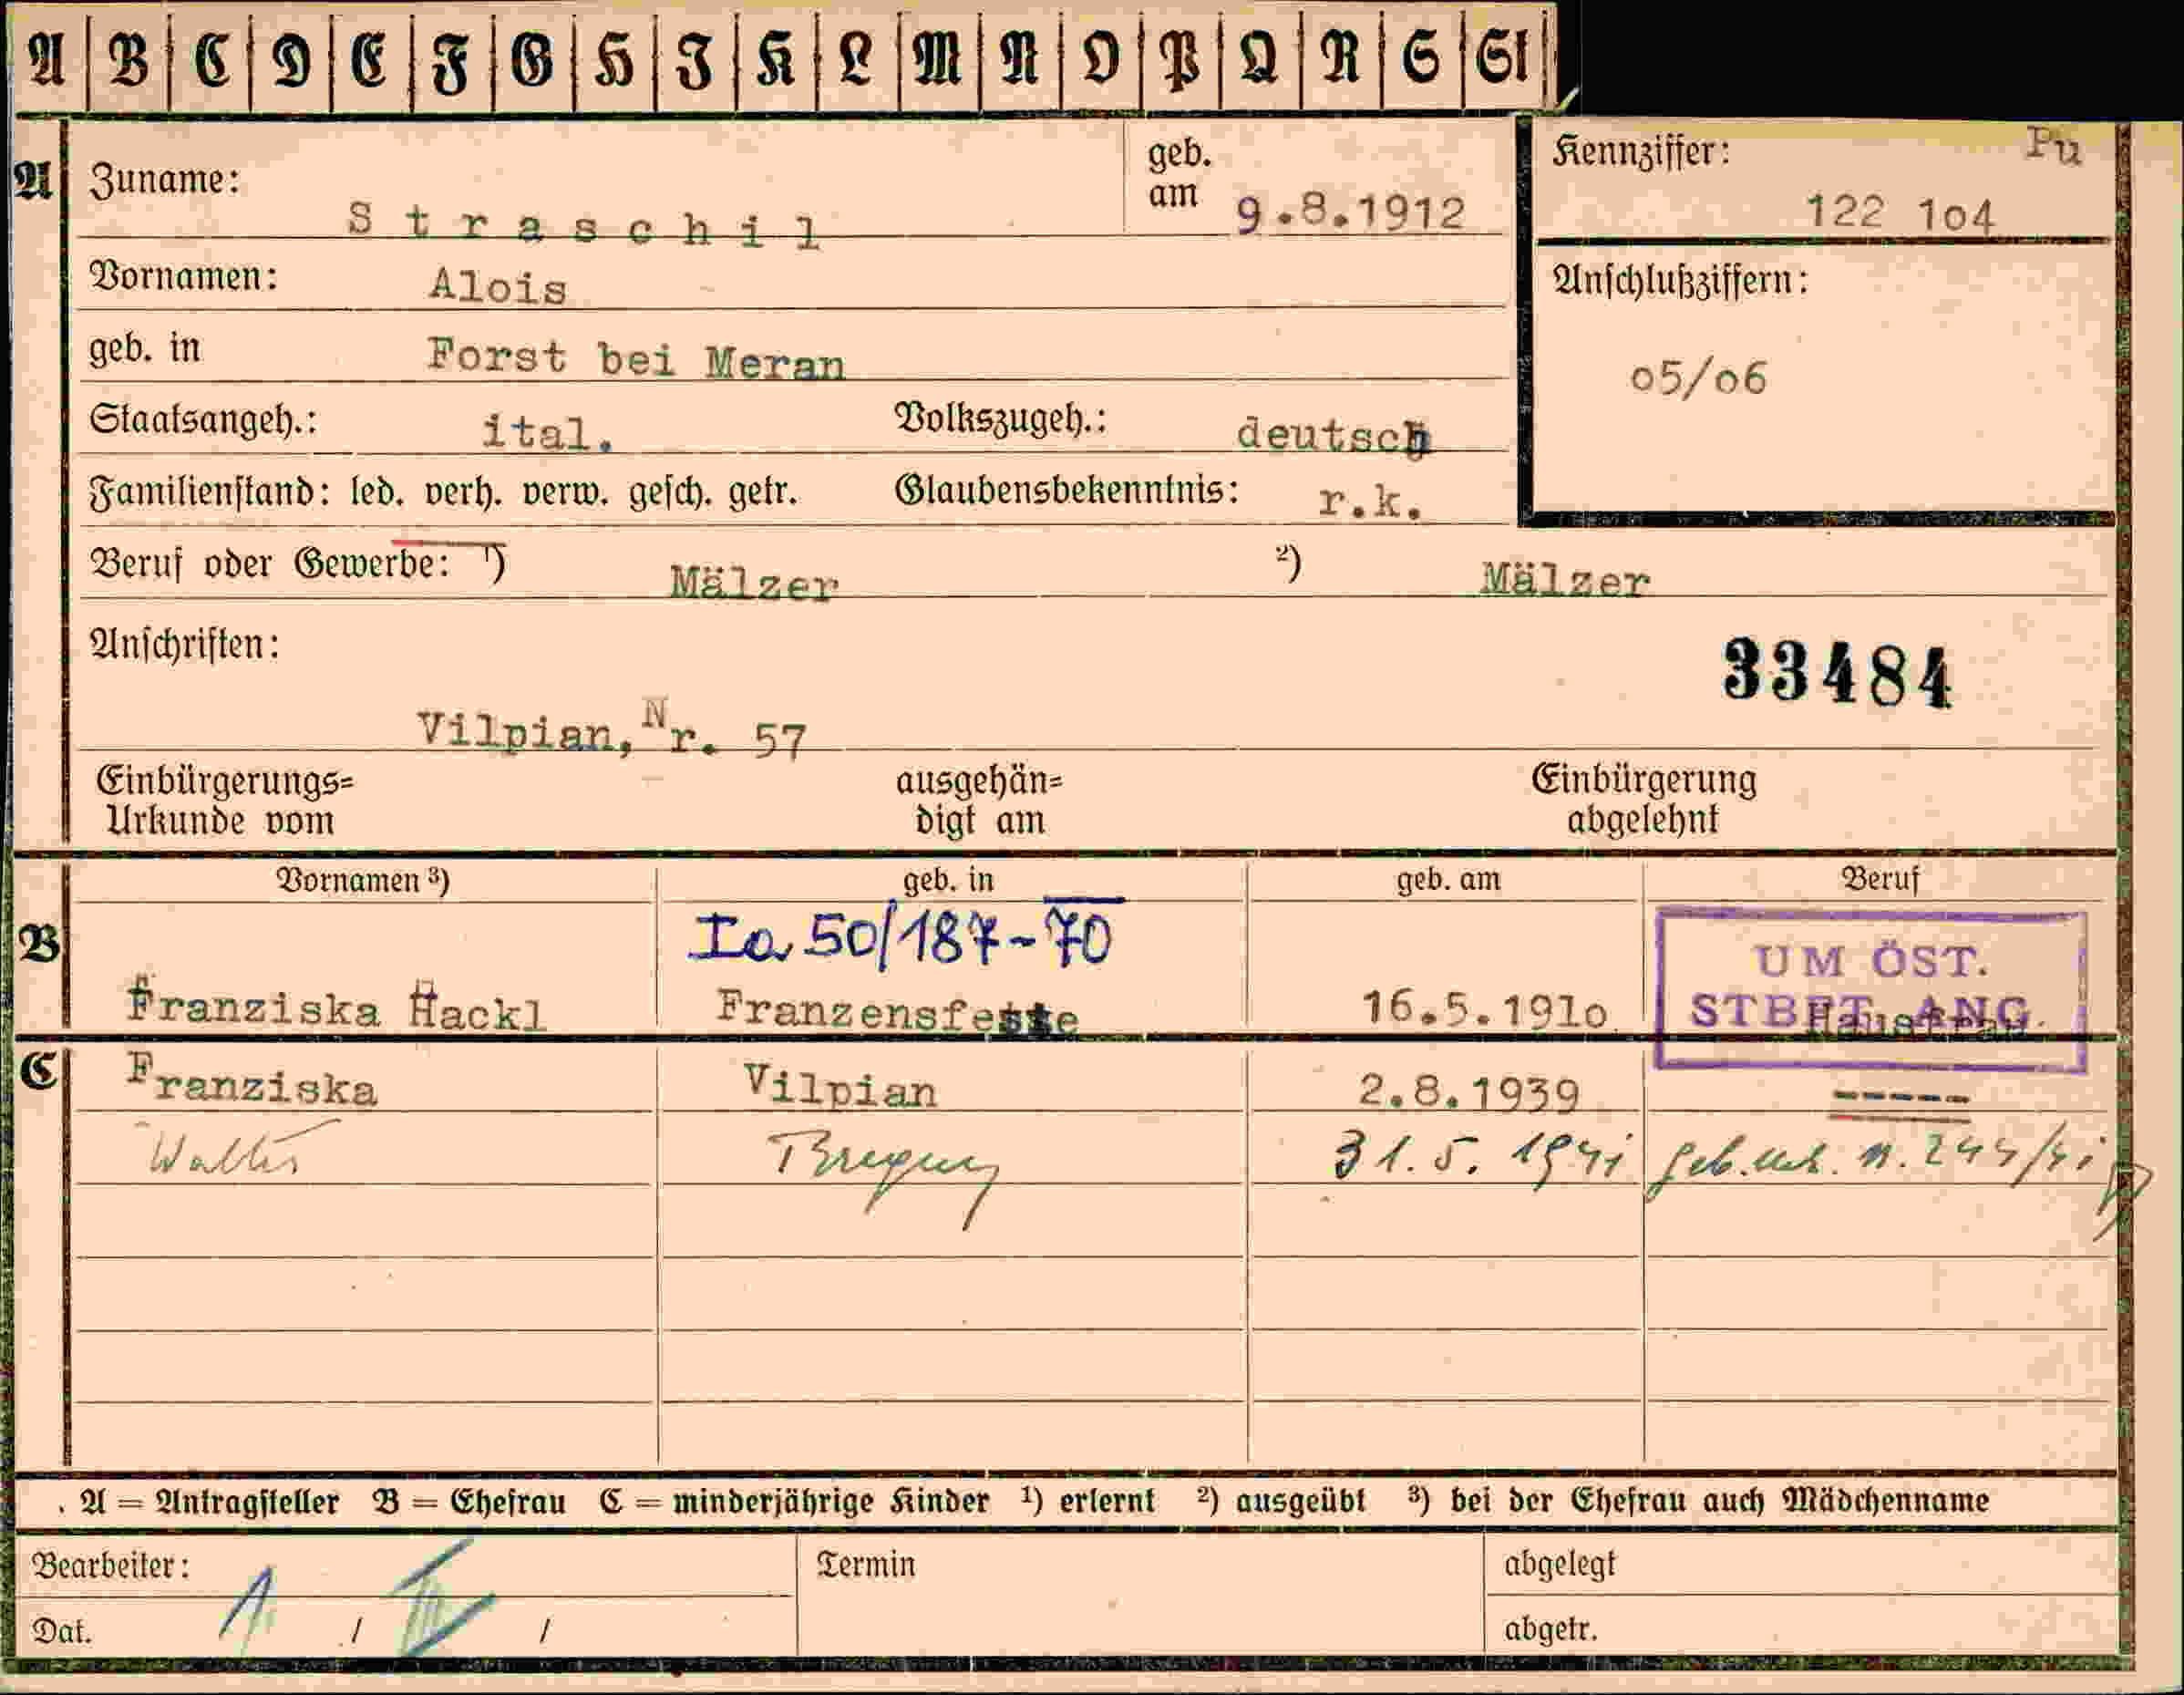 A B C D E F G H I K L M N O P Q R S St
A Zuname: Straschil geb. am 9.8.1912 Kennziffer: Pu
122 1o4
Vornamen: Alois Anschlußziffern:
geb. in Forst bei Meran o5/o6
Staatsangeh.: ital. Volkszugeh.: deutsch
Familienstand: led. verh. verw. gesch. getr. Glaubensbekenntnis: r.k.
Beruf oder Gewerbe: ¹) Mälzer ²) Mälzer
Anschriften: 33484
Vilpian, Nr. 57
Einbürgerungs= ausgehän= Einbürgerung
Urkunde vom digt am abgelehnt
Vornamen ³) geb. in geb. am Beruf
B Ia 50/187-70 UM ÖST.
Franziska Hackl Franzensfeste 16.5.191o STBET. ANG. Hausfrau
C Franziska Vilpian 2.8.1939 -----
Walter Bregenz 31.5.1941 geb. urk. n. 244/41
. A = Antragsteller B = Ehefrau C = minderjährige Kinder ¹) erlernt ²) ausgeübt ³) bei der Ehefrau auch Mädchenname
Bearbeiter: Termin abgelegt
Dat. / / abgetr.